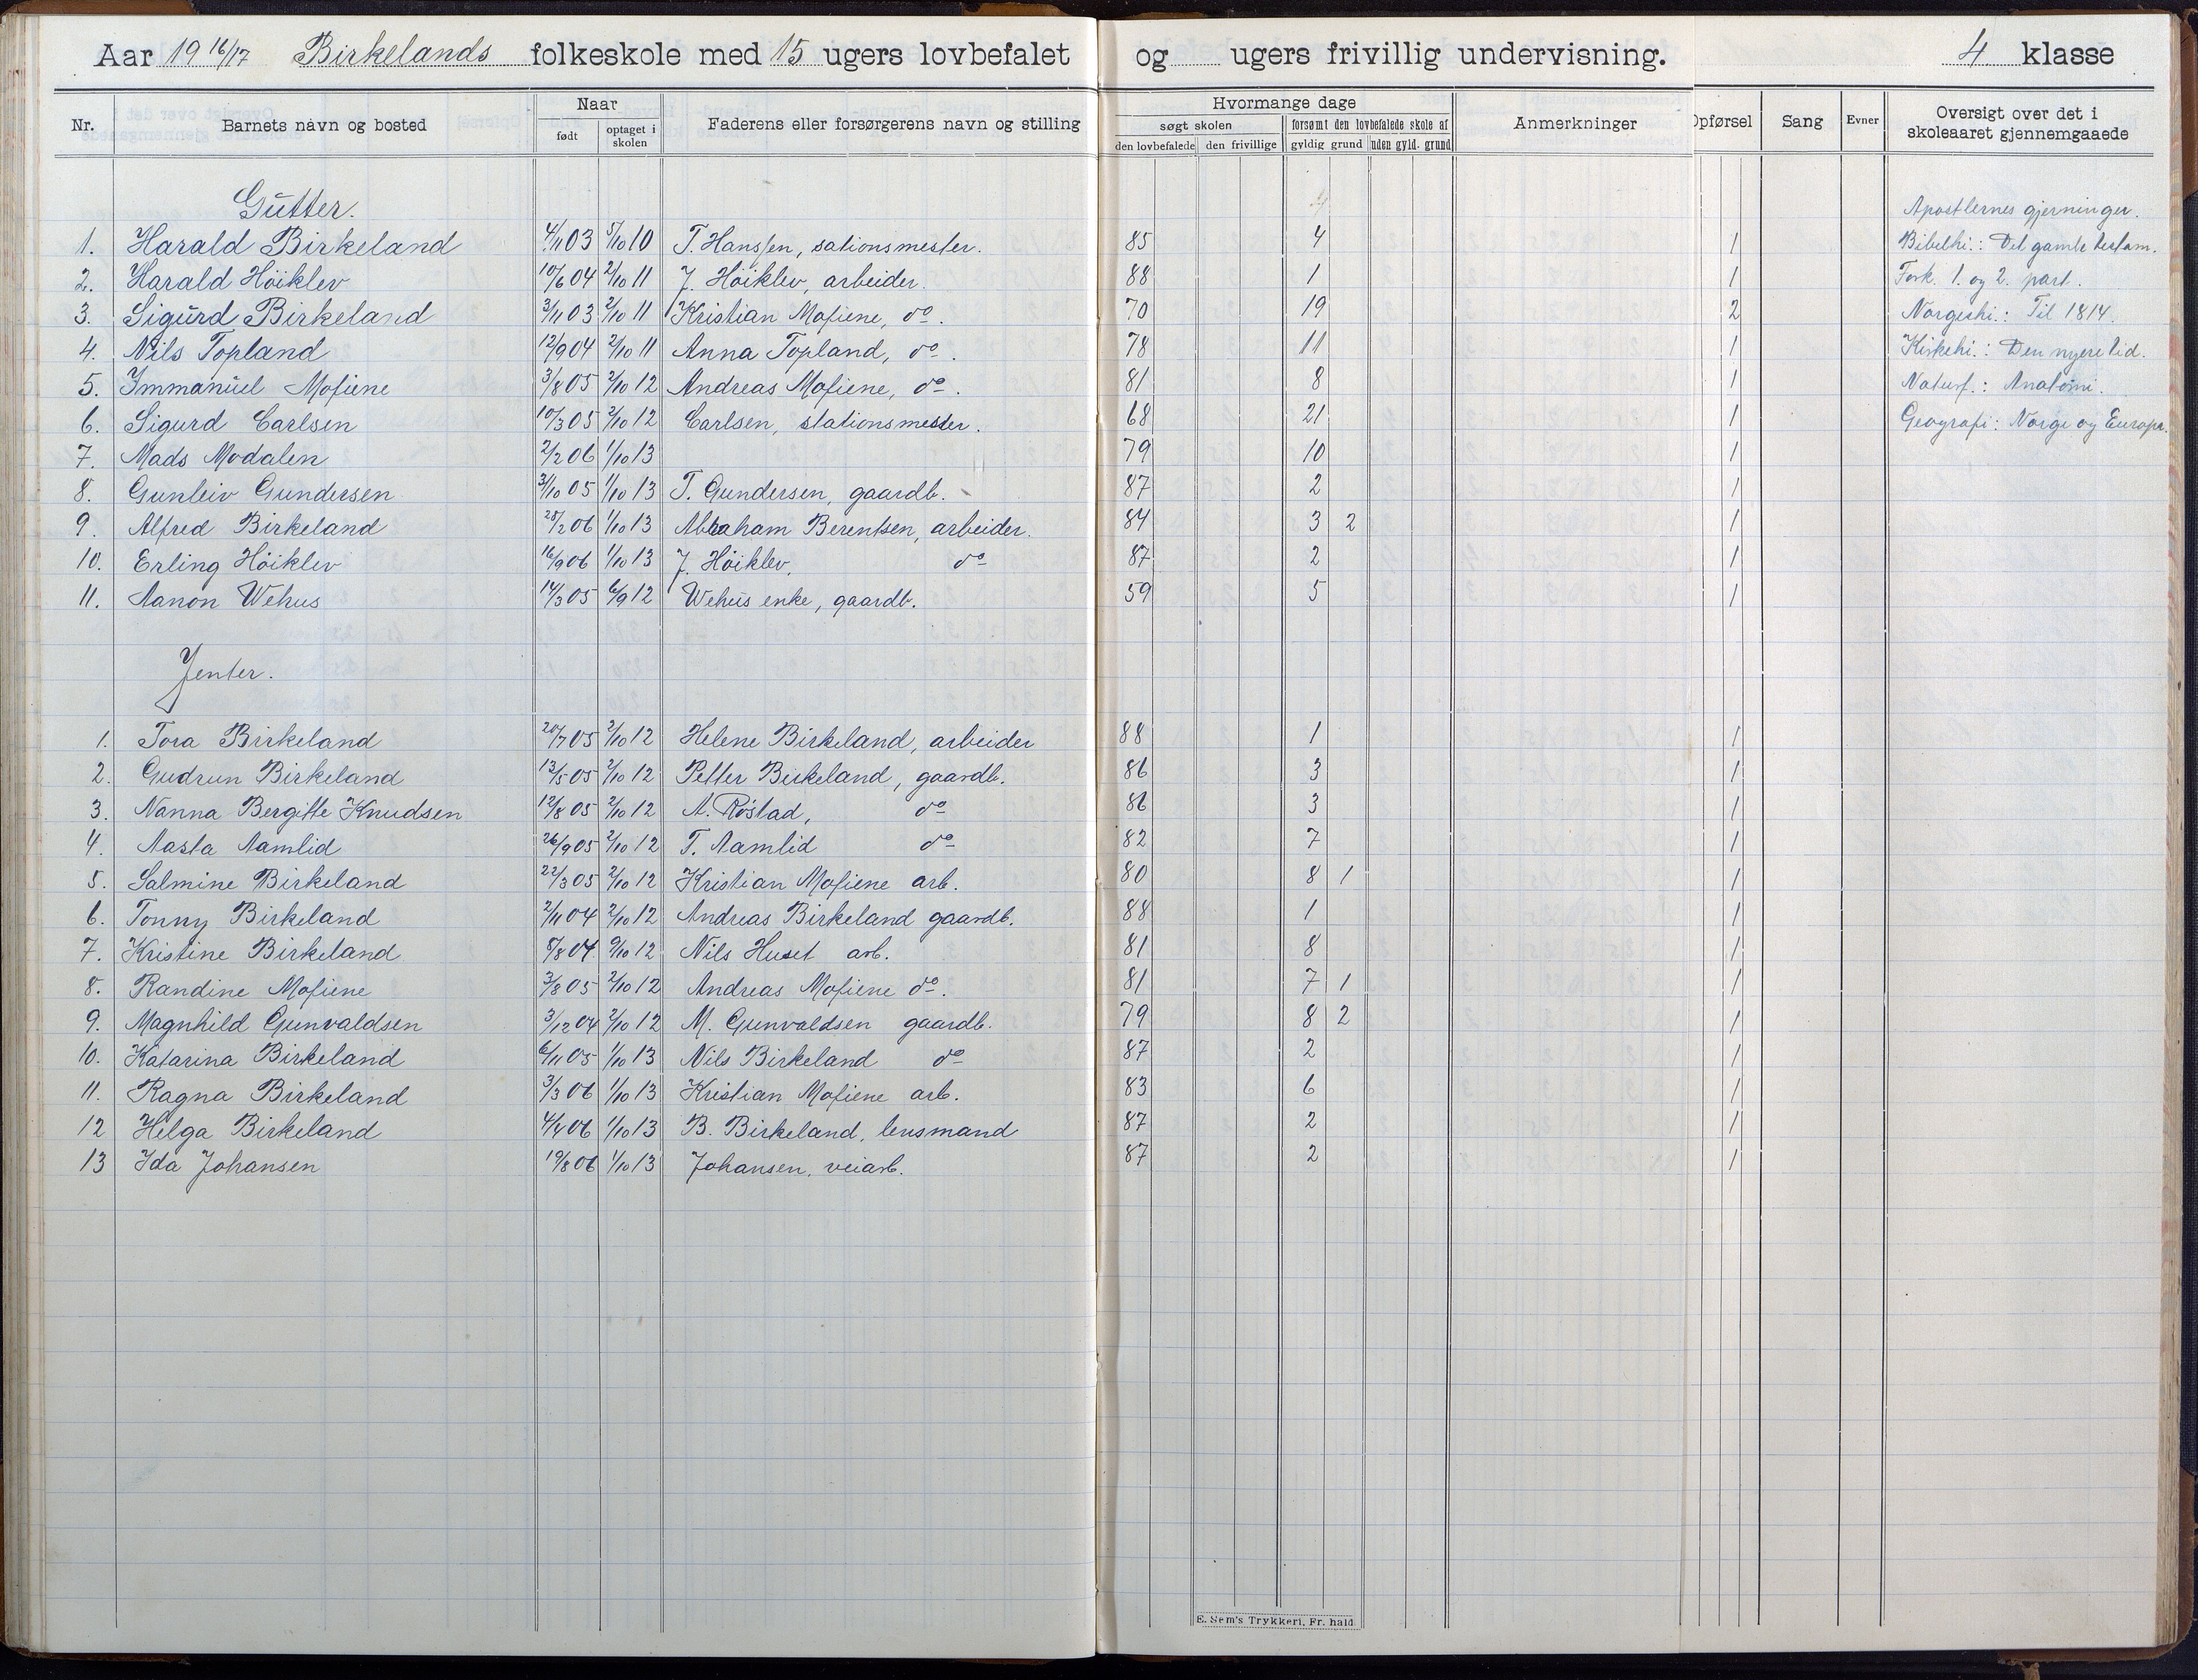 Aar 19 16/17 Birkelands folkeskole med 15 ugers lovbefalet og ugers frivillig undervisning. 4 klasse
Nr. Barnets navn og bosted Naar født optaget i skolen Faderens eller forsørgerens navn og stilling Hvormange dage søgt skolen den lovbefalede den frivillige forsømt den lovbefalede skole af gyldig grund uden gyld. grund Anmerkninger Opførsel Sang Evner Oversigt over det i skoleaaret gjennemgaaede
Gutter.
Apostlernes gjerninger.
1. Harald Birkeland 4/11 03 5/10 10 T. Hanssen, sationsmester. 85 4 1 Bibelhi.: Det gamle testam.
2. Harald Höiklev 10/6 04 2/10 11 J. Höiklev, arbeider. 88 1 1 Fork. 1. og 2. part.
3. Sigurd Birkeland 3/11 03 2/10 11 Kristian Mofiene, do. 70 19 2 Norgeshi.: Til 1814.
4. Nils Topland 12/9 04 2/10 11 Anna Topland, do. 78 11 1 Kirkehi.: Den nyere tid.
5. Immanuel Mofiene 3/8 05 2/10 12 Andreas Mofiene, do. 81 8 1 Naturf.: Anatomi.
6. Sigurd Carlsen 10/3 05 2/10 12 Carlsen, stationsmester. 68 21 1 Geografi: Norge og Europa.
7. Mads Modalen 2/2 06 1/10 13 79 10 1
8. Gunleiv Gundersen 3/10 05 1/10 13 T. Gundersen, gaardb. 87 2 1
9. Alfred Birkeland 28/2 06 1/10 13 Abraham Berentsen, arbeider. 84 3 2 1
10. Erling Höiklev 16/9 06 1/10 13 J. Höiklev, do 87 2 1
11. Aanon Wehus 14/3 05 6/9 12 Wehus enke, gaardb. 59 5 1
Jenter.
1. Tora Birkeland 20/7 05 2/10 12 Helene Birkeland, arbeider 88 1 1
2. Gudrun Birkeland 13/5 05 2/10 12 Petter Birkeland, gaardb. 86 3 1
3. Nanna Bergitte Knudsen 12/8 05 2/10 12 A. Röstad, do 86 3 1
4. Aasta Aamlid 26/9 05 2/10 12 T. Aamlid do 82 7 1
5. Salmine Birkeland 22/3 05 2/10 12 Kristian Mofiene arb. 80 8 1 1
6. Tonny Birkeland 2/11 04 2/10 12 Andreas Birkeland gaardb. 88 1 1
7. Kristine Birkeland 8/8 04 9/10 12 Nils Huset arb. 81 8 1
8. Randine Mofiene 3/8 05 2/10 12 Andreas Mofiene do. 81 7 1 1
9. Magnhild Gunvaldsen 3/12 04 2/10 12 M. Gunvaldsen gaardb. 79 8 2 1
10. Katarina Birkeland 6/11 05 1/10 13 Nils Birkeland do 87 2 1
11. Ragna Birkeland 3/3 06 1/10 13 Kristian Mofiene arb. 83 6 1
12 Helga Birkeland 4/4 06 1/10 13 B. Birkeland, lensmand 87 2 1
13 Ida Johansen 19/8 06 1/10 13 Johansen, veiarb. 87 2 1
E. Sem's Trykkeri, Fr. hald